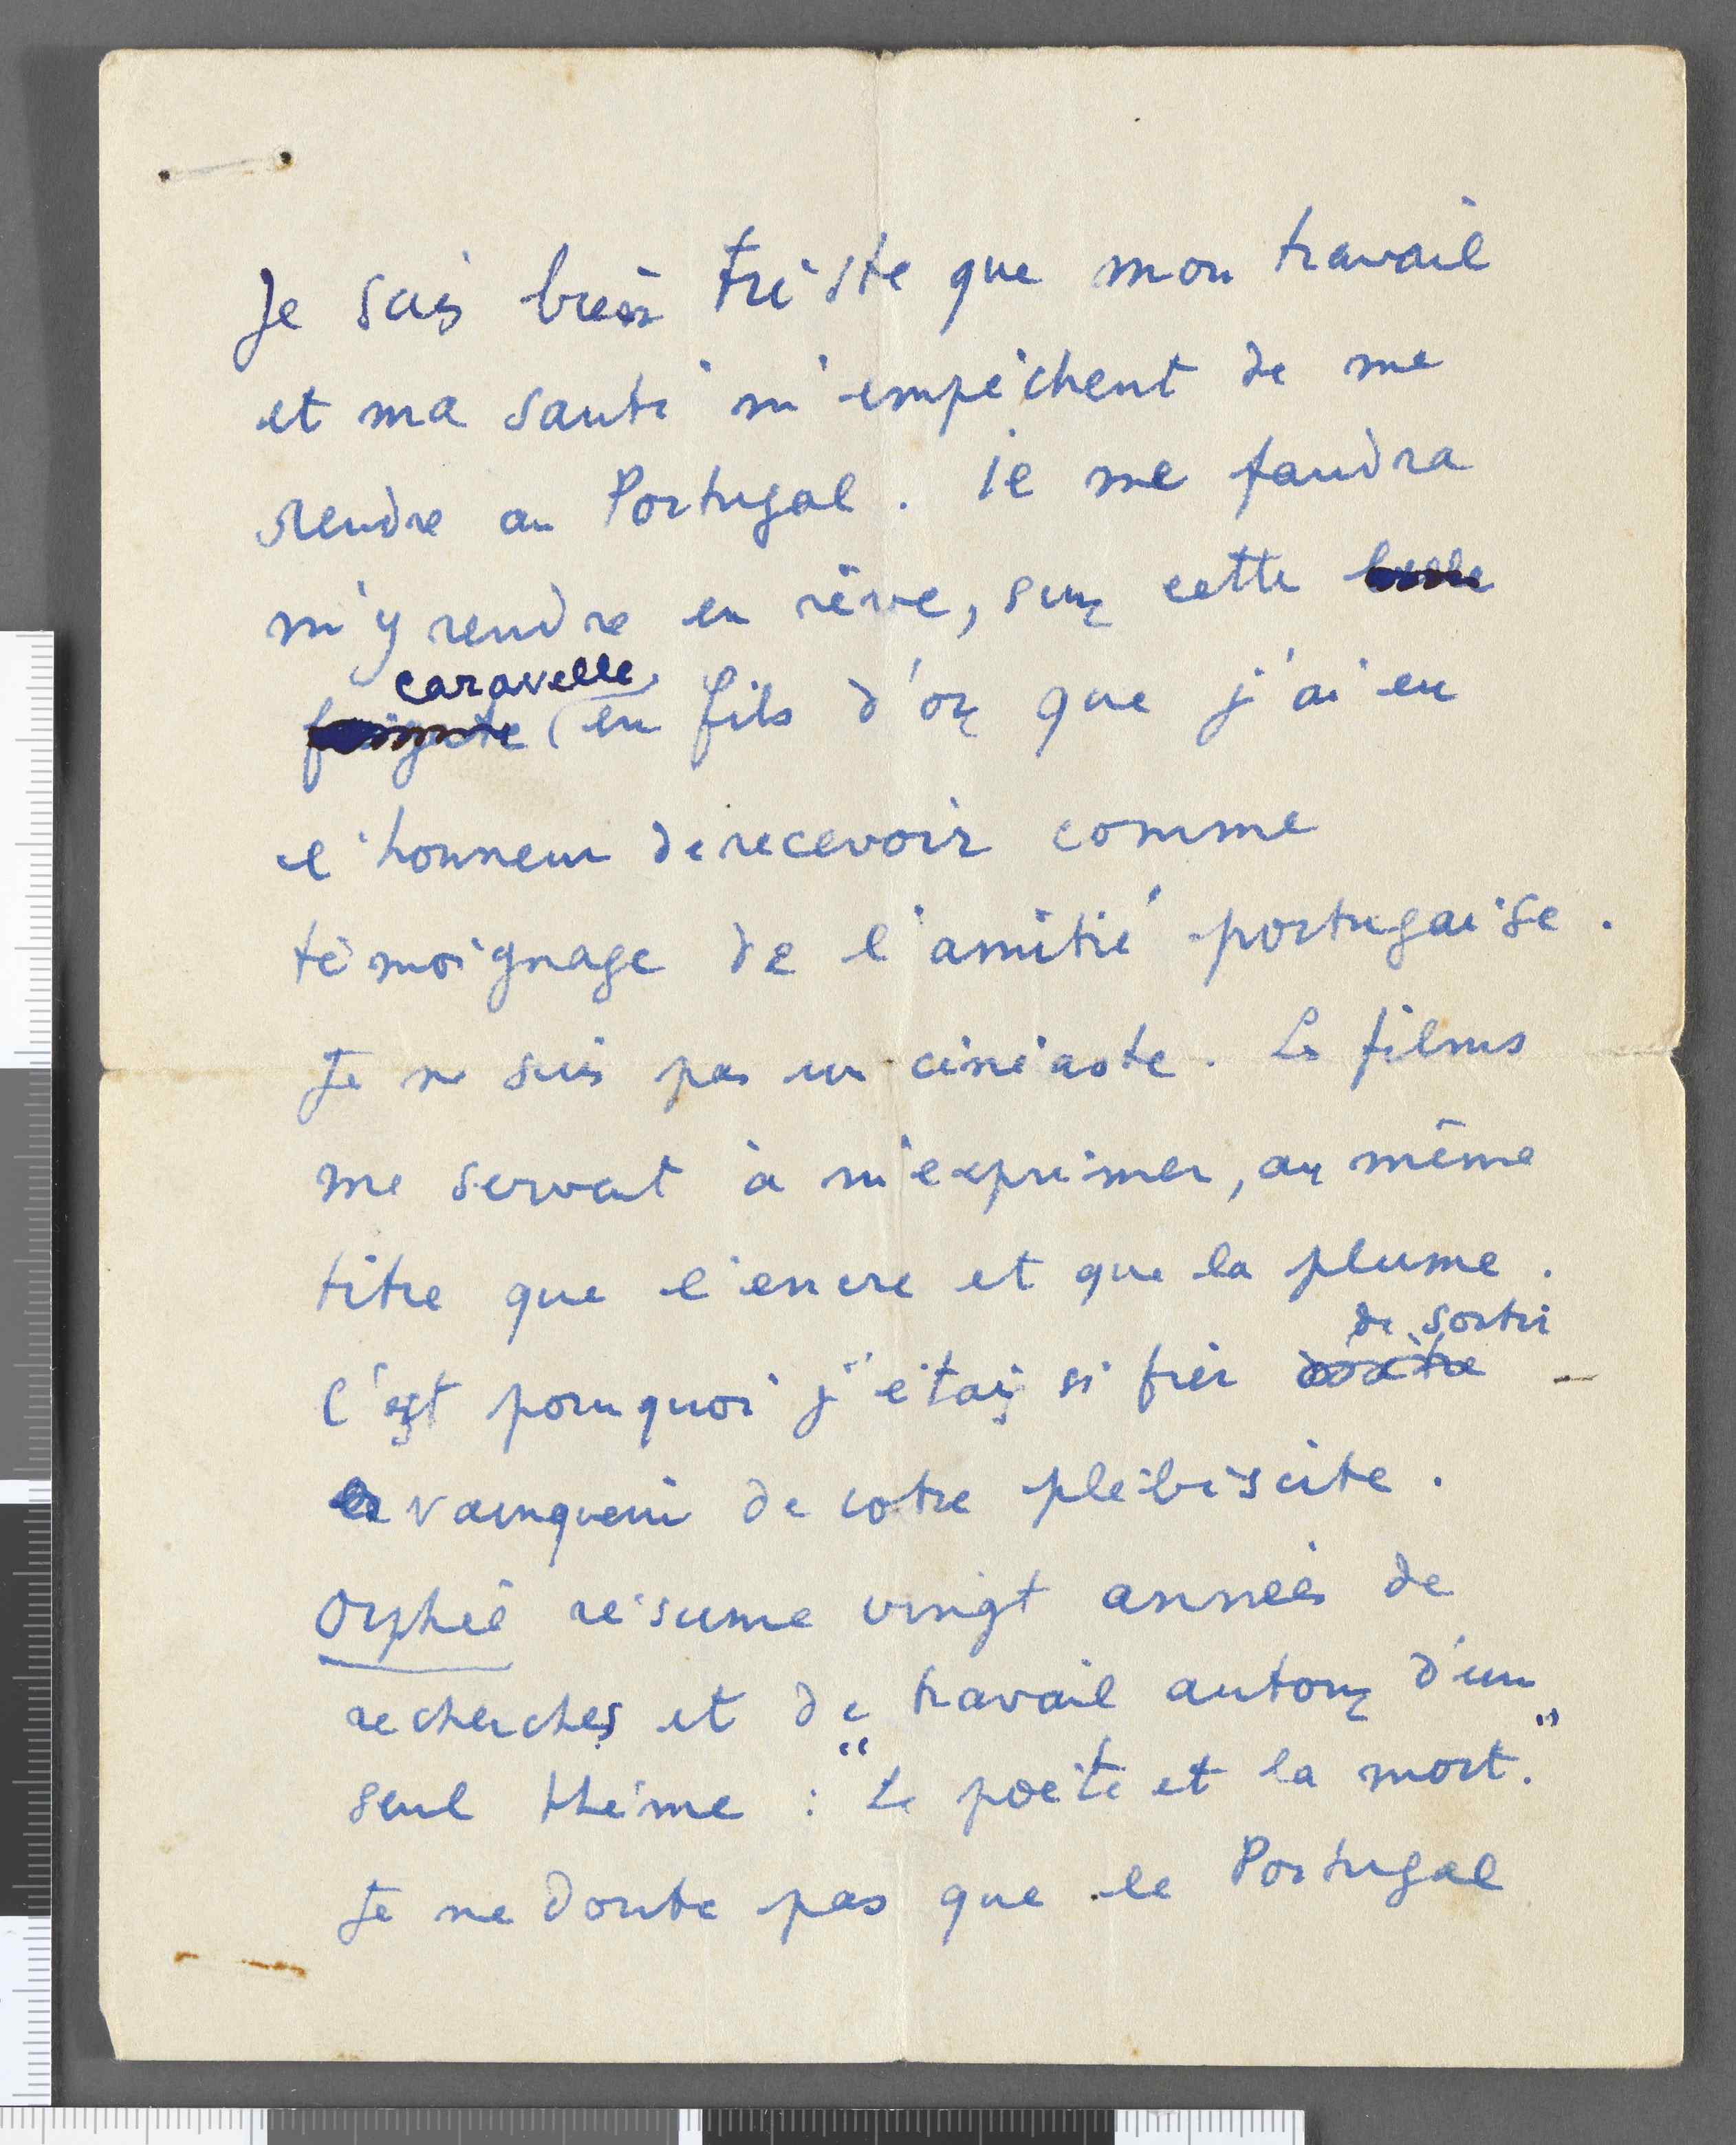 Je suis bien triste que mon travail
et ma santé m'empêchent de me
rendre au Portugal. Il me faudra
m'y rendre en rêve, sur cette
caravelle
en fils d'or que j'ai eu
l'honneur de recevoir comme
témoignage de l'amitié portugaise.
Je ne suis pas un cinéaste. Les films
me servent à m'exprimer, au même
titre que l'encre et que la plume.
de sortir
C'est pourquoi j'étais si fier
vainqueur de votre plébiscite.
Orphée résume vingt années de
recherches et de travail autour d'un
seul thème : "Le poète et la mort."
Je ne doute pas que le Portugal